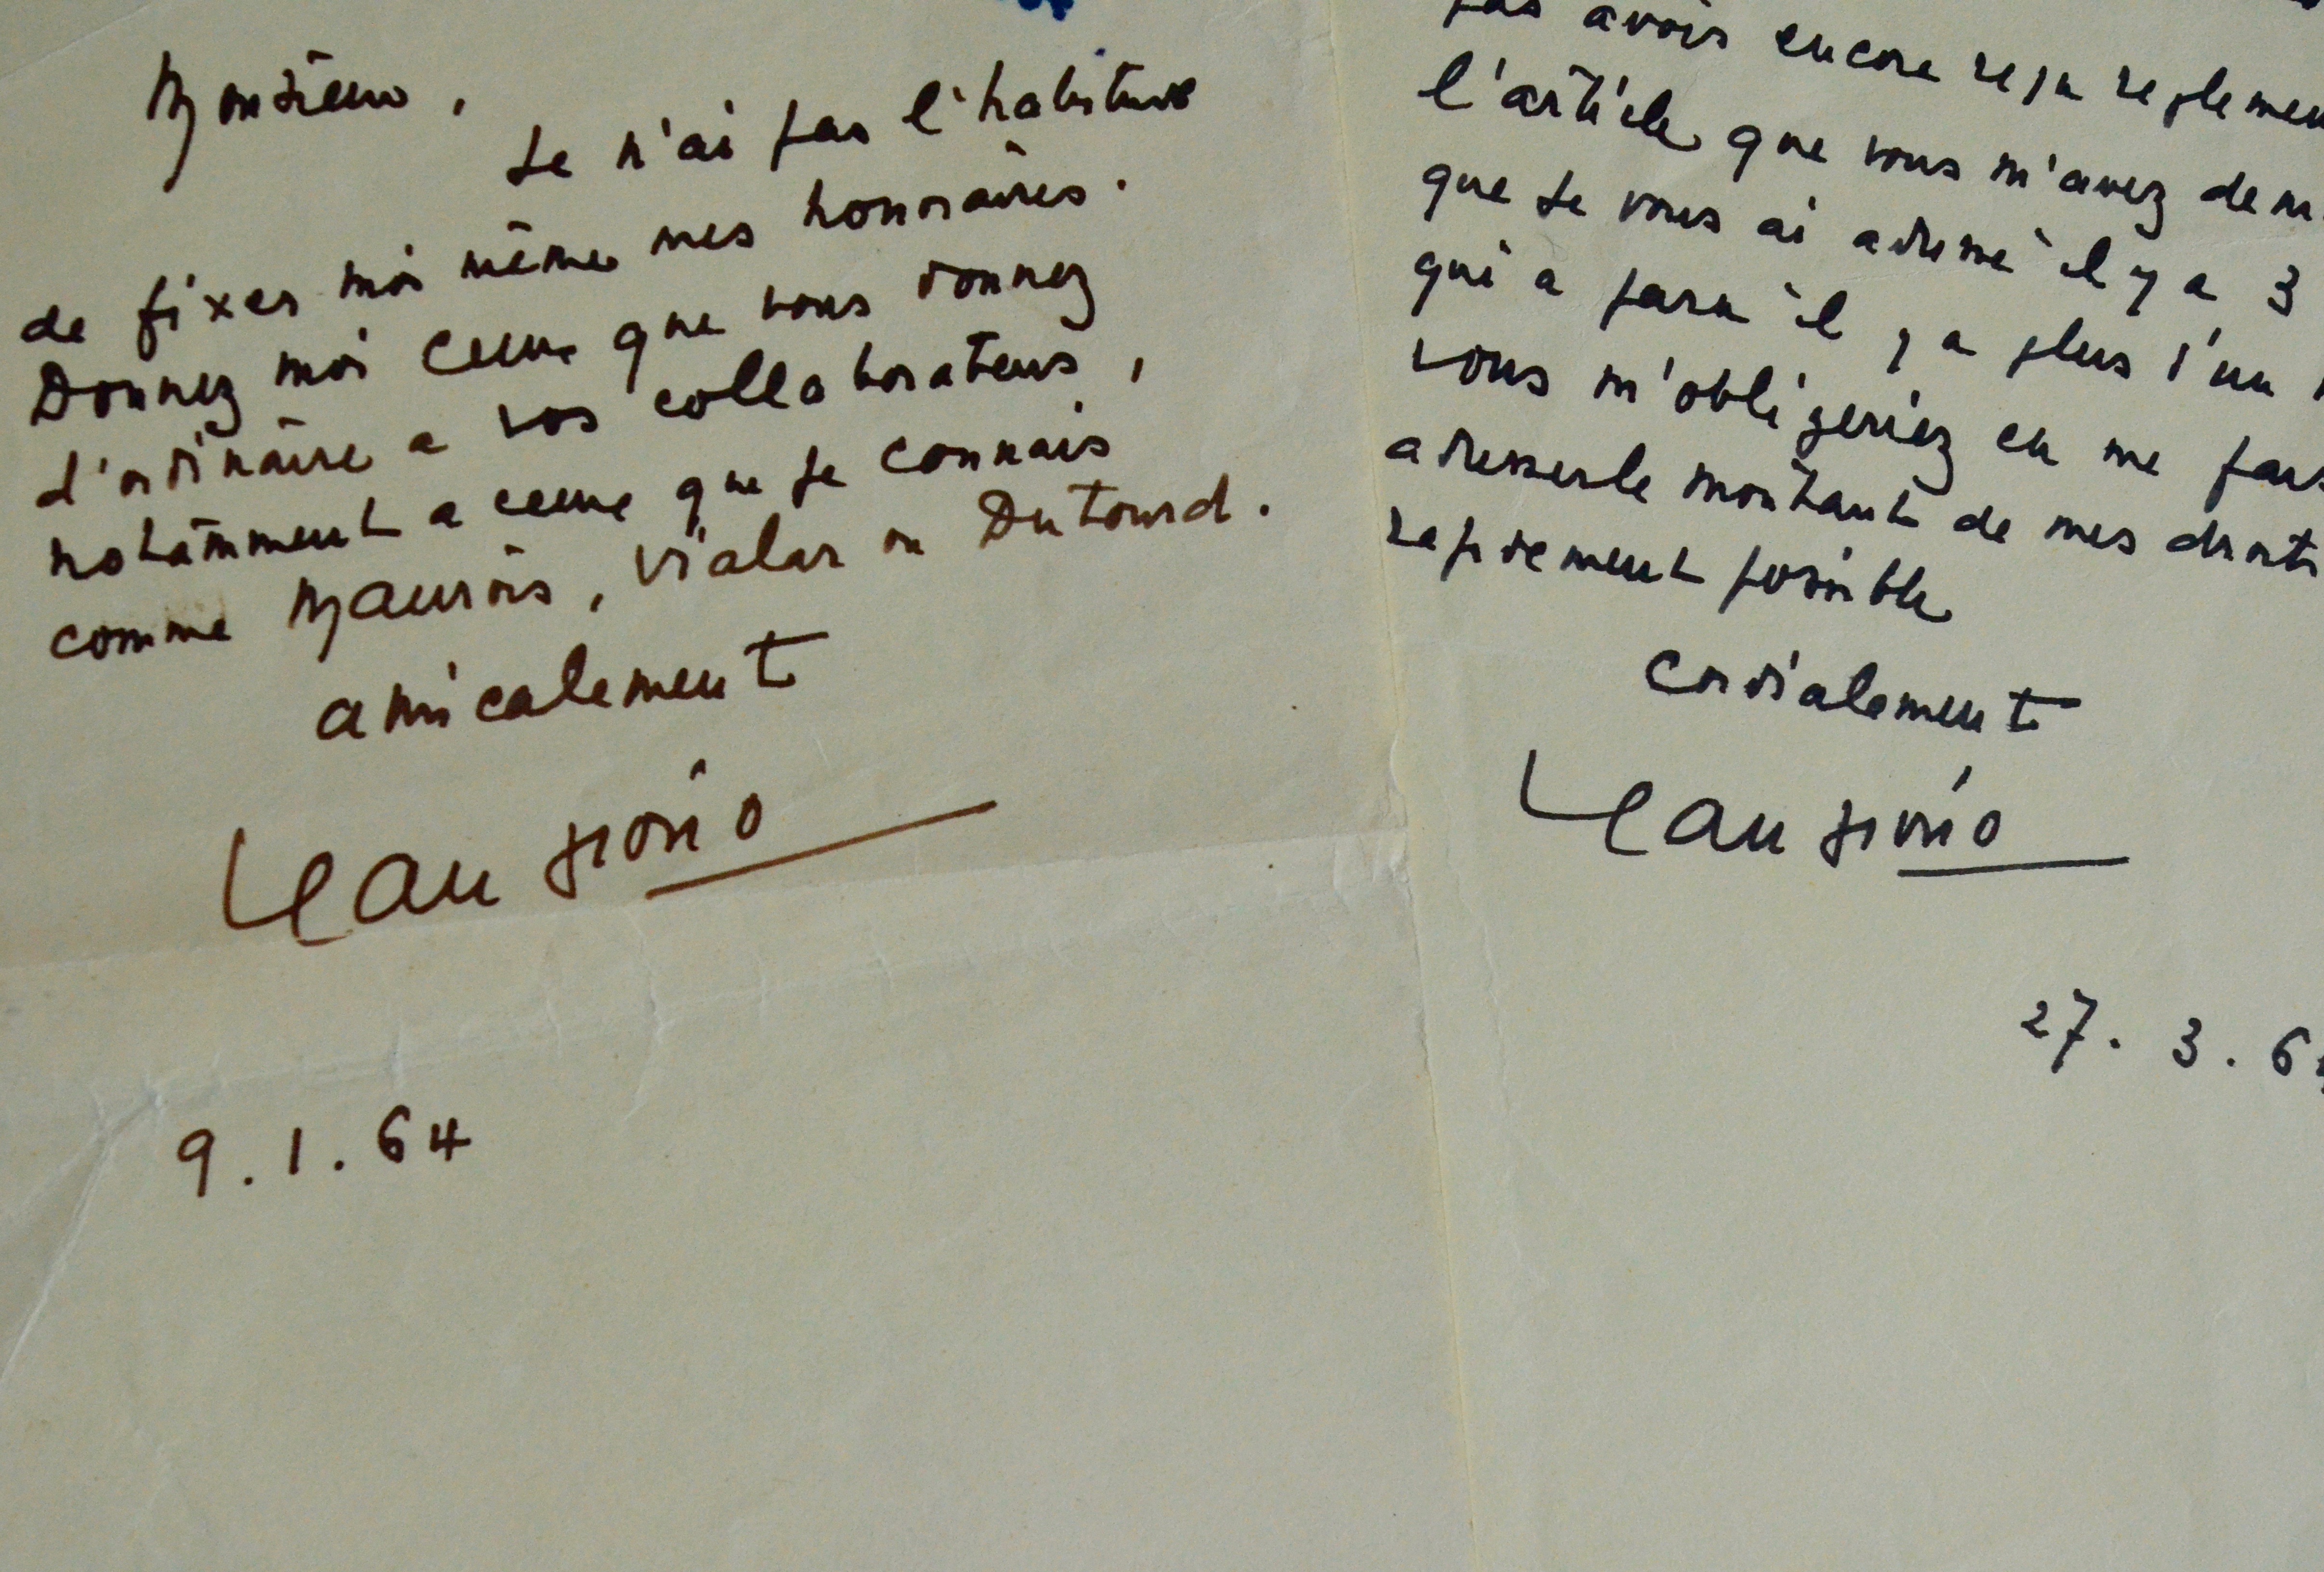 Monsieur,
Je n'ai pas l'habitude
de fixer moi même mes honoraires.
Donnez moi ceux que vous donnez
d'ordinaire a vos collaborateurs,
notamment a ceux que je connais
comme Maurois, Vialar ou Dutourd.
amicalement
Jean Giono
9.1.64
pas avoir encore reçu reglemen
l'article que vous m'avez dem
que je vous ai adressé il y a 3
qui a paru il y a plus d'un
vous m'obligeriez en me fais
adresser le montant de mes droits
rapidement possible
Cordialement
Jean Giono
27.3.64